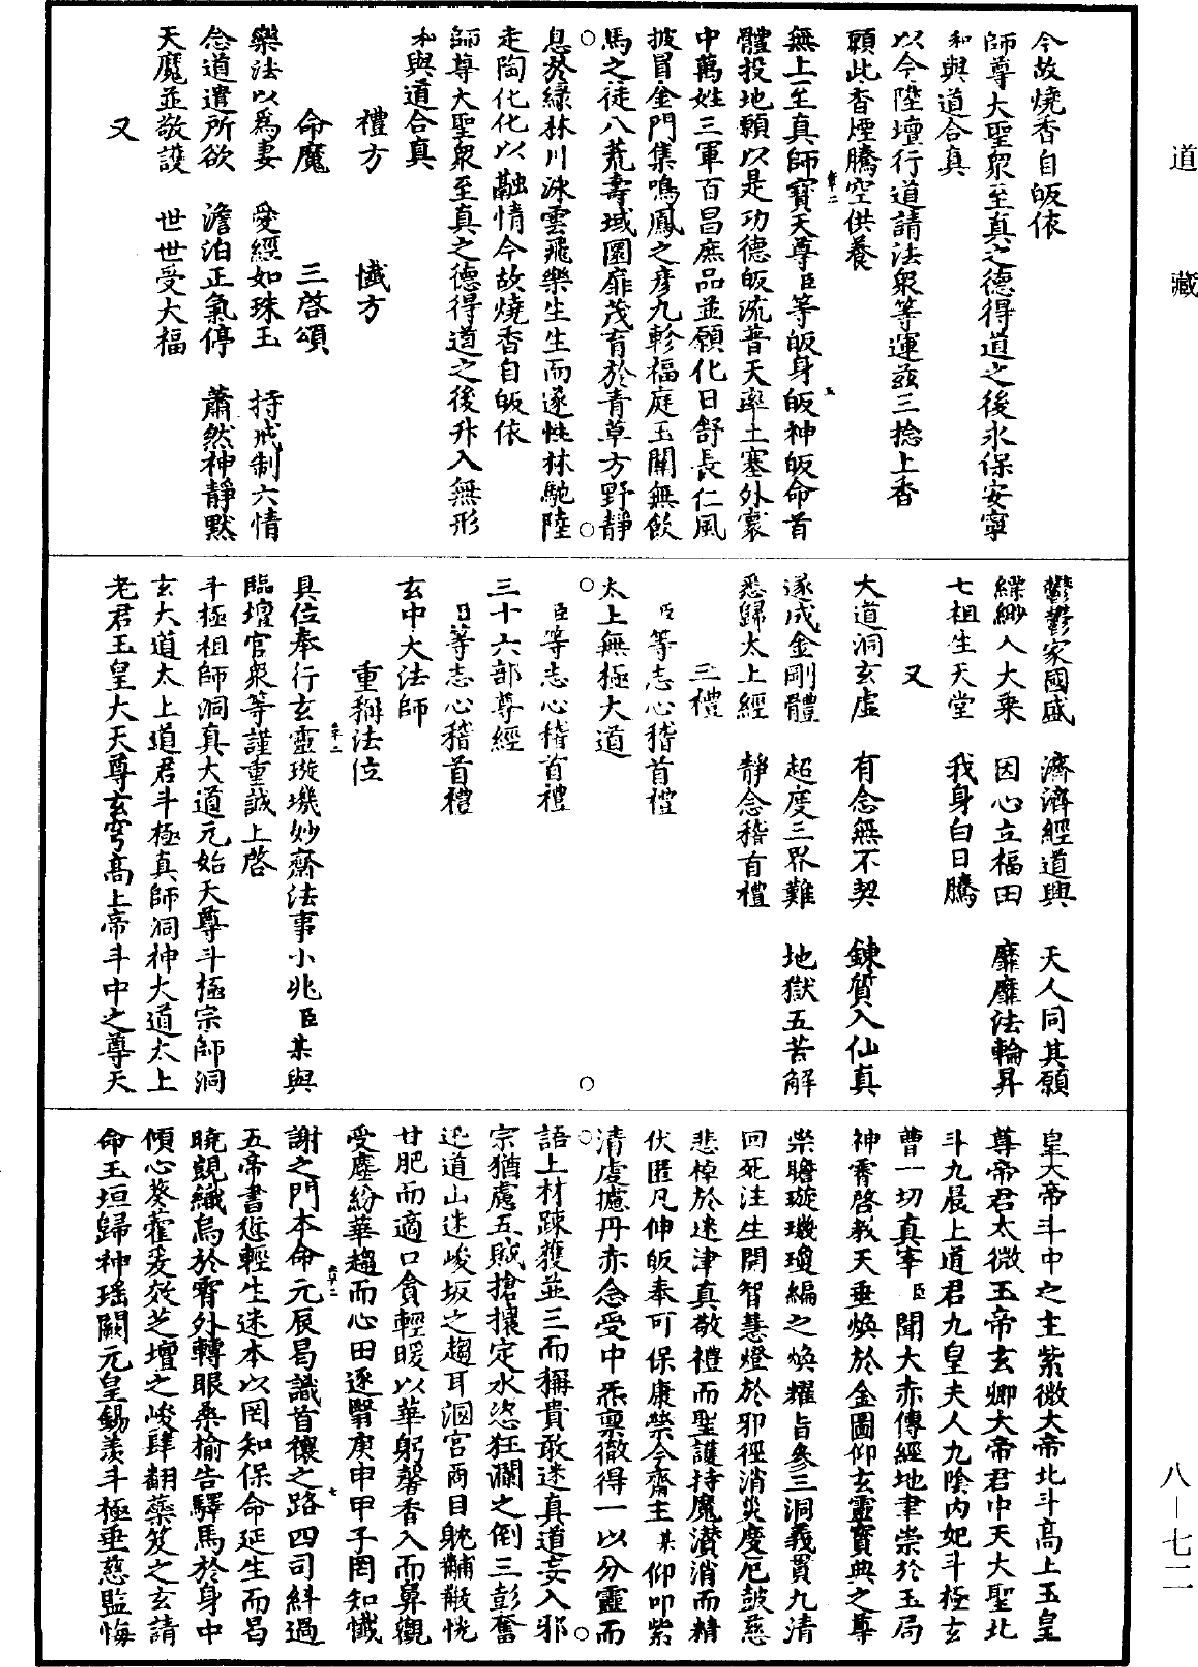 道藏
今故燒香自皈依
師尊大聖眾至真之德得道之後永保安寧
和與道合真
以今陞壇行道請法眾等運茲三捻上香
願此香煙騰空供養
無上至真師寶天尊臣等皈身皈神皈命首
體投地願以是功德皈流普天率土塞外寰
中萬姓三軍百昌庶品並願化日舒長仁風
披冒金門集鳴鳳之彥九軫福庭玉關無飲
馬之徒八荒壽域園扉茂育於青草方野靜
息於綠林川泳雲飛樂生生而遂性林馳陸
走陶化化以融情今故燒香自皈依
師尊大聖眾至真之德得道之後升入無形
和與道合真
禮方 懺方
命魔 三啓頌
樂法以為妻 愛經如珠玉 持戒制六情
念道遣所欲 澹泊正氣停 蕭然神靜默
天魔並敬護 世世受大福
又
鬱鬱家國盛 濟濟經道興 天人同其願
縹緲入大乘 因心立福田 靡靡法輪昇
七祖生天堂 我身白日騰
又
大道洞玄虛 有念無不契 鍊質入仙真
遂成金剛體 超度三界難 地獄五苦解
悉歸太上經 靜念稽首禮
三禮
臣等志心稽首禮
太上無極大道
臣等志心稽首禮
三十六部尊經
臣等志心稽首禮
玄中大法師
重稱法位
具位奉行玄靈璇璣妙齋法事小兆臣某與
臨壇官眾等謹重誠上啓
斗極祖師洞真大道元始天尊斗極宗師洞
玄大道太上道君斗極真師洞神大道太上
老君玉皇大天尊玄穹高上帝斗中之尊天
皇大帝斗中之主紫微大帝北斗高上玉皇
尊帝君太微玉帝玄卿大帝君中天大聖北
斗九晨上道君九皇夫人九陰內妃斗極玄
曹一切真宰臣聞大赤傳經地聿崇於玉局
神霄啓教天垂煥於金圖仰玄靈寶典之尊
崇瞻璇璣瓊編之煥耀旨參三洞義貫九清
回死注生開智慧燈於邪徑消災度厄鼓慈
悲棹於迷津真敬禮而聖護持魔潛消而精
伏匿凡伸皈奉可保康榮今齋主某仰叩紫
清虔攄丹赤念受中炁稟徹得一以分靈而
語上材踈獲並三而稱貴敢迷真道妄入邪
宗猶慮五賊搶攘定水恣狂瀾之倒三彭奮
迅道山迷峻坂之趨耳溷宮商目眈黼黻恍
甘肥而適口貪輕暖以華躬馨香入而鼻觀
受塵紛華趨而心田逐翳庚申甲子罔知懺
謝之門本命元辰曷識首禳之路四司糾過
五帝書愆輕生迷本以罔知保命延生而曷
曉覬織烏於霄外轉眼桑榆告驛馬於身中
傾心葵藿爰效芝壇之峻肆翻蘂笈之玄請
命玉垣歸神瑤闕元皇錫羨斗極垂慈監悔
八—七二